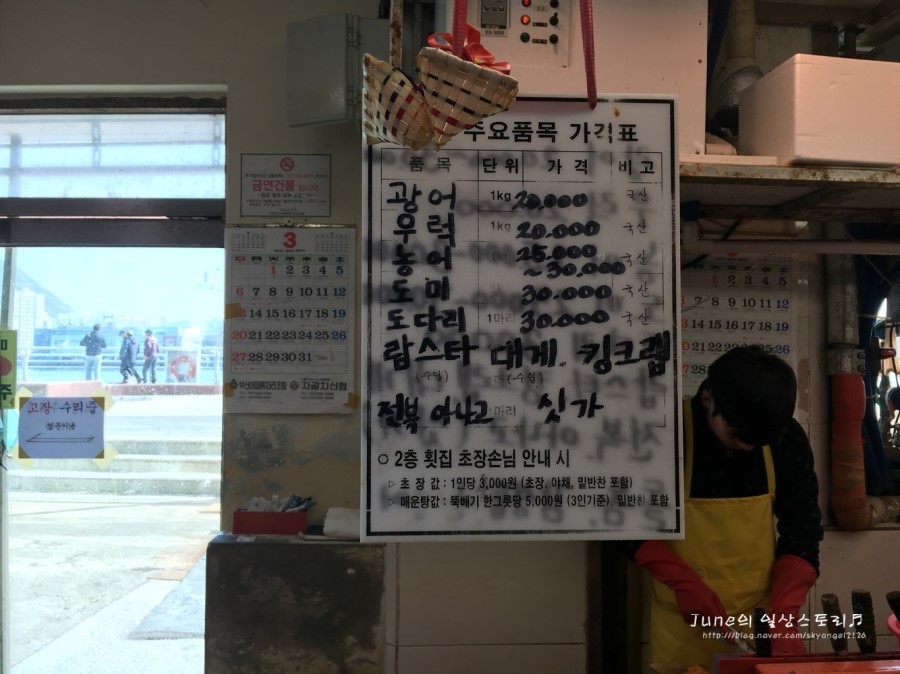 주요품목 가격표
품목 단위 가격 비고
광어 1kg 20.000 국산
우럭 1kg 20.000 국산
농어 25.000 ~30.000 국산
도미 30.000 국산
도다리 1마리 30.000 국산
랍스타 대게 킹크랩
(수입) (수입)
전복 아나고 마리 싯가
○ 2층 횟집 초장손님 안내 시
▷ 초 장 값 : 1인당 3,000원 (초장, 야채, 밑반찬 포함)
▷ 매운탕값 : 뚝배기 한그릇당 5,000원 (3인기준), 밑반찬 포함
금연건물
3
日 月 火 水 木 金 土
1 2 3 4 5
6 7 8 9 10 11 12
13 14 15 16 17 18 19
20 21 22 23 24 25 26
27 28 29 30 31
자갈치신협
고장 수리중
June의 일상스토리♬
http://blog.naver.com/skyangel2126